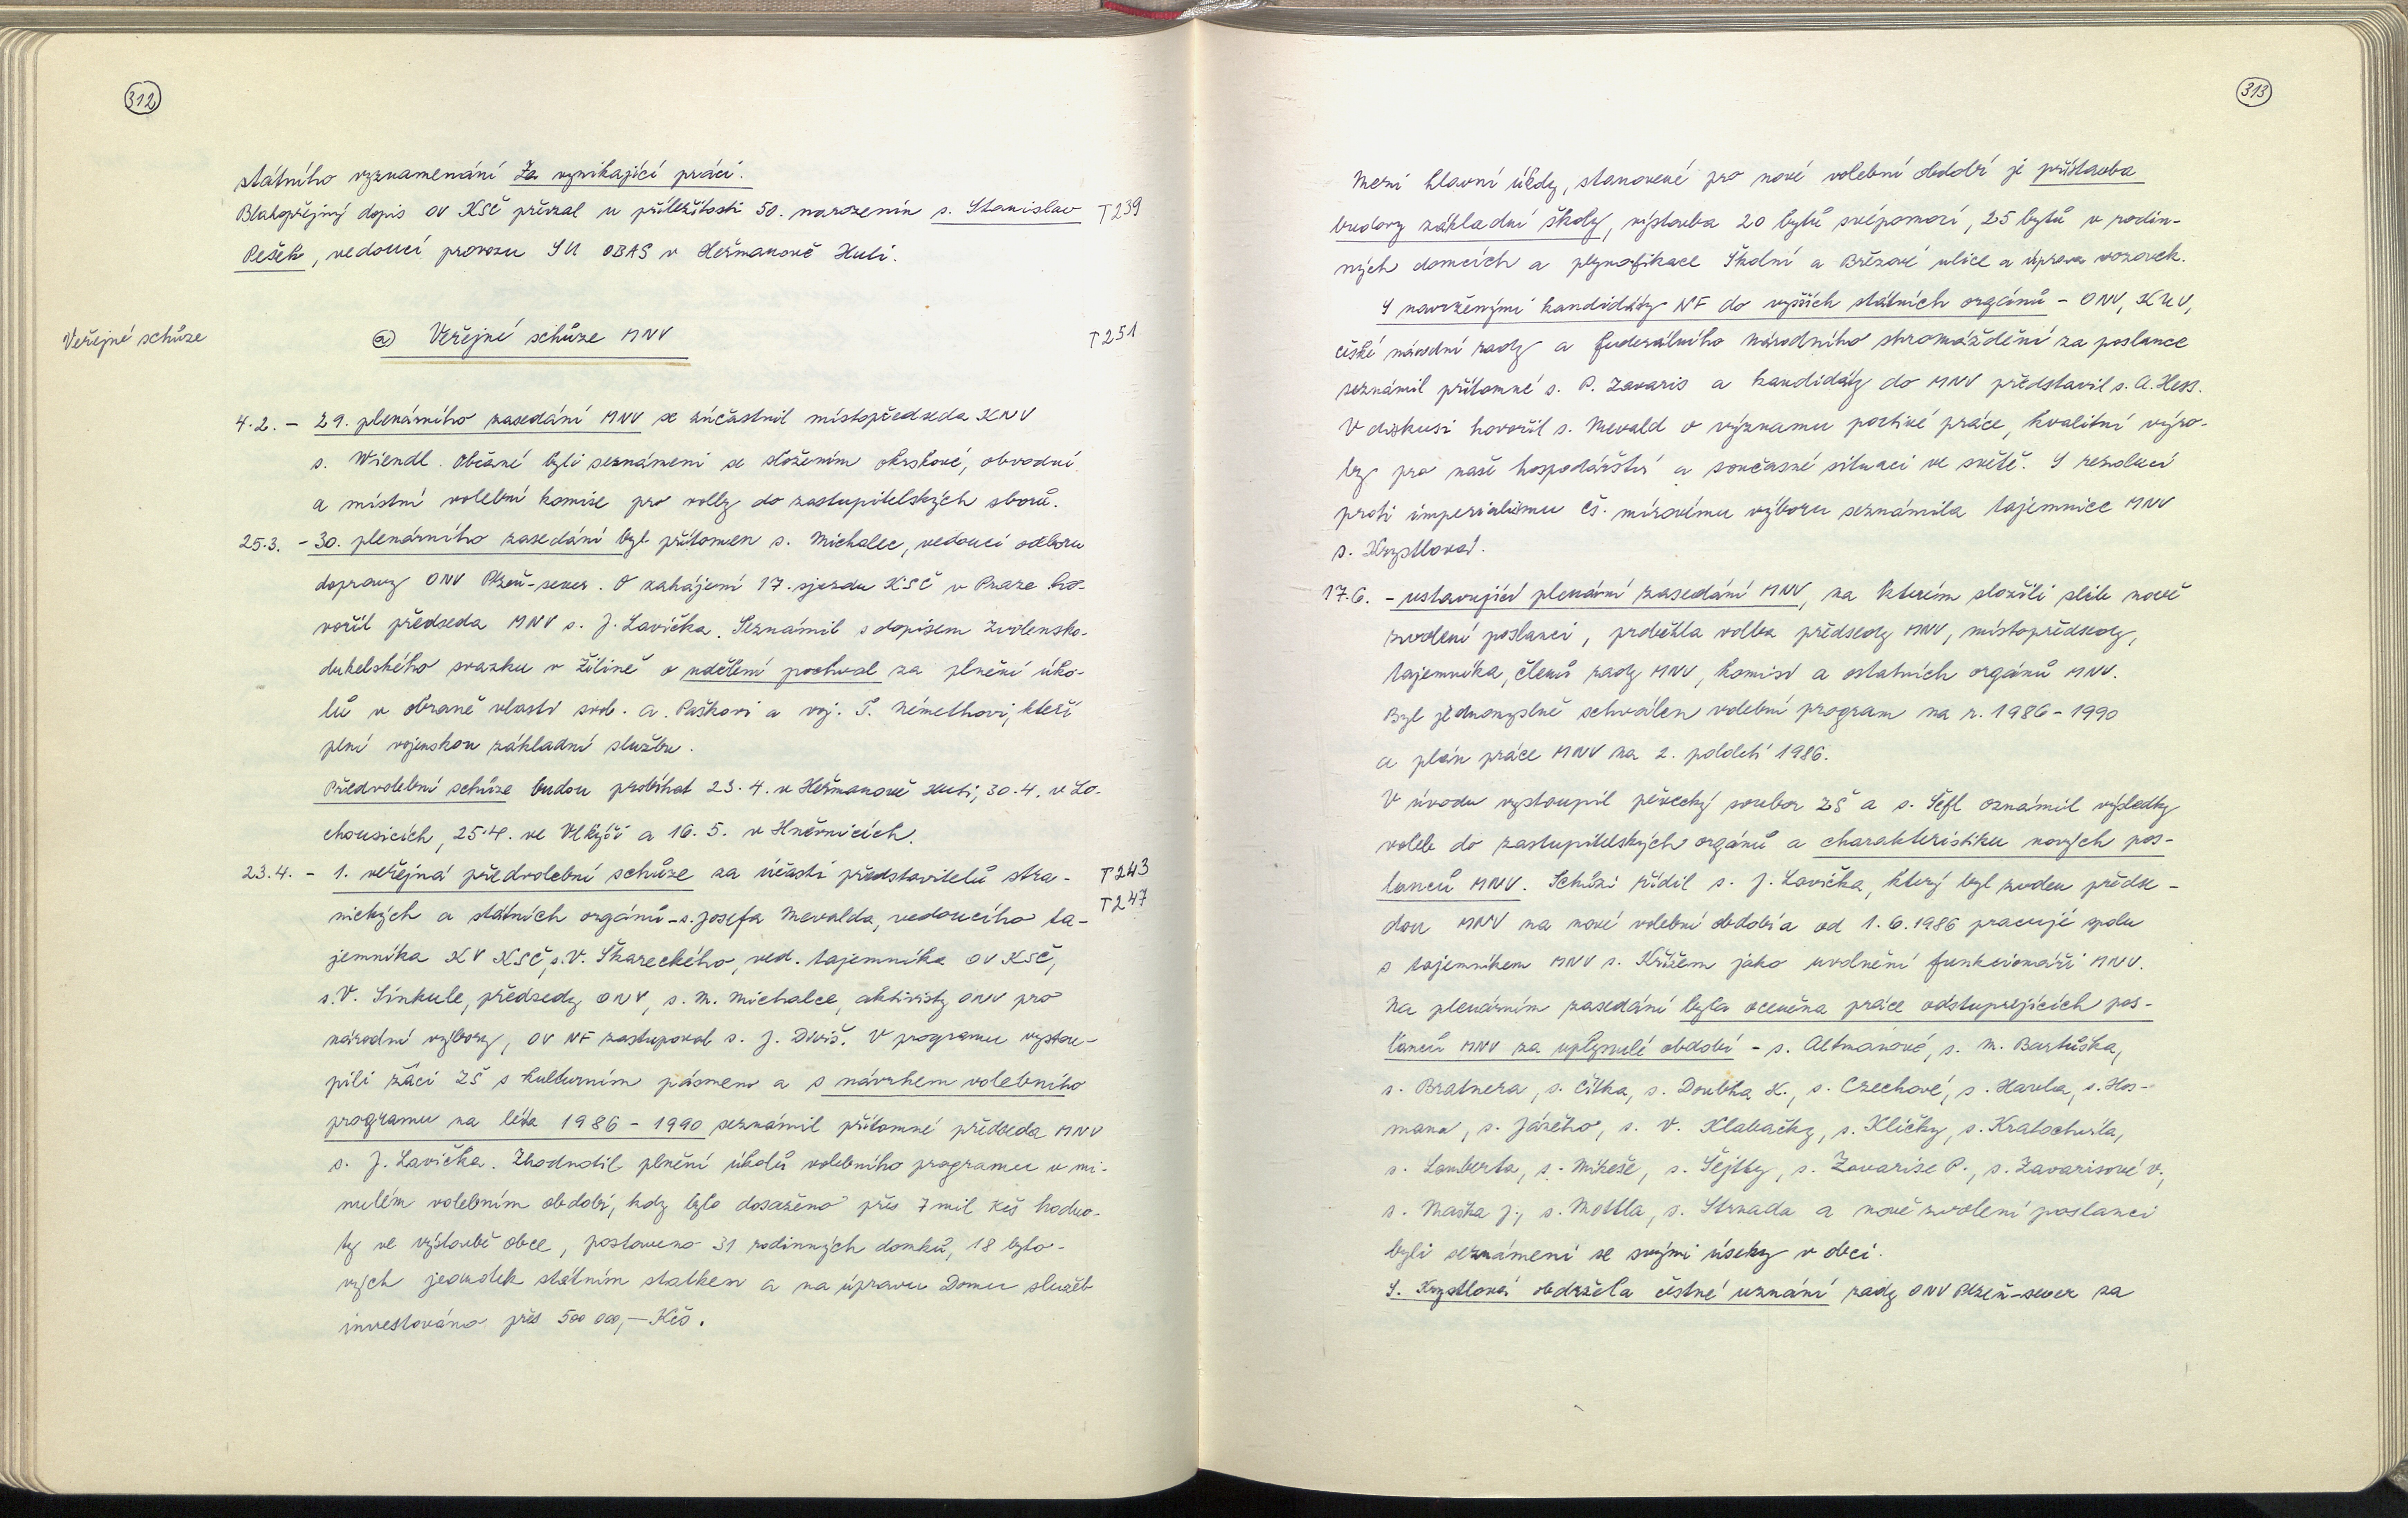 312
státního vyznamenání Za vynikající práci.
Blahopřejný dopis OV KSČ převzal u příležitosti 50. narozenin s. Stanislav T239
Pešek, vedoucí provozu SU OBAS v Heřmanově Huti.
Veřejné schůze
a) Veřejné schůze MNV T251
4.2. - 29. plenárního zasedání MNV se zúčastnil místopředseda KNV
s. Wiendl. Občané byli seznámeni se složením okrskové, obvodní
a místní volební komise pro volby do zastupitelských sborů.
25.3. - 30. plenárního zasedání byl přítomen s. Michalec, vedoucí odboru
dopravy ONV Plzeň-sever. O zahájení 17. sjezdu KSČ v Praze ho-
vořil předseda MNV s. J. Lavička. Seznámil s dopisem Zvolensko-
dukelského svazku v Žilině o udělení pochval za plnění úko-
lů v obraně vlasti svob. A. Paškovi a voj. T. Némethovi, kteří
plní vojenskou základní službu.
Předvolební schůze budou probíhat 23.4. v Heřmanově Huti, 30.4. v Lo-
chousicích, 25.4. ve Vlkýši a 16.5. v Hněvnicích.
23.4. - 1. veřejná předvolební schůze za účasti představitelů stra- T243
nických a státních orgánů - s. Josefa Mevalda, vedoucího ta- T247
jemníka KV KSČ, s. V. Škareckého, ved. tajemníka OV KSČ,
s. V. Sinkule, předsedy ONV, s. M. Michalce, aktivisty ONV pro
národní výbory, OV NF zastupoval s. J. Diviš. V programu vystou-
pili žáci ZŠ s kulturním pásmem a s návrhem volebního
programu na léta 1986 - 1990 seznámil přítomné předseda MNV
s. J. Lavička. Zhodnotil plnění úkolů volebního programu v mi-
nulém volebním období, kdy bylo dosaženo přes 7 mil Kčs hodno-
ty ve výstavbě obce, postaveno 31 rodinných domků, 18 byto-
vých jednotek státním statkem a na úpravu Domu služeb
investováno přes 500 000,- Kčs.
313
Mezi hlavní úkoly, stanovené pro nové volební období je přístavba
budovy základní školy, výstavba 20 bytů svépomocí, 25 bytů v rodin-
ných domcích a plynofikace Školní a Březové ulice a úprava vozovek.
S navrženými kandidáty NF do vyšších státních orgánů - ONV, KNV,
české národní rady a Federálního národního shromáždění za poslance
seznámil přítomné s. P. Zavaris a kandidáty do MNV představil s. A. Hess.
V diskusi hovořil s. Mevald o významu poctivé práce, kvalitní výro-
by pro naše hospodářství a současné situaci ve světě. S rezolucí
proti imperialismu čs. mírovému výboru seznámila tajemnice MNV
s. Krystlová.
17.6. - ustavující plenární zasedání MNV, na kterém složili slib nově
zvolení poslanci, proběhla volba předsedy MNV, místopředsedy,
tajemníka, členů rady MNV, komisí a ostatních orgánů MNV.
Byl jednomyslně schválen volební program na r. 1986 - 1990
a plán práce MNV na 2. pololetí 1986.
V úvodu vystoupil pěvecký soubor ZŠ a s. Šefl oznámil výsledky
voleb do zastupitelských orgánů a charakteristiku nových pos-
lanců MNV. Schůzi řídil s. J. Lavička, který byl zvolen předse-
dou MNV na nové volební období a od 1.6.1986 pracuje spolu
s tajemníkem MNV s. Křížem jako uvolnění funkcionáři MNV.
Na plenárním zasedání byla oceněna práce odstupujících pos-
lanců MNV za uplynulé období - s. Altmanové, s. M. Bartůška,
s. Bratnera, s. Cilka, s. Doubka K., s. Czechové, s. Havla, s. Hos-
mana, s. Jázého, s. V. Klabačky, s. Kličky, s. Kratochvíla,
s. Lamberta, s. Mikeše, s. Šejtky, s. Zavarise P., s. Zavarisové V.,
s. Maška J., s. Mottla, s. Strnada a nově zvolení poslanci
byli seznámeni se svými úseky v obci.
S. Krystlová obdržela čestné uznání rady ONV Plzeň-sever za